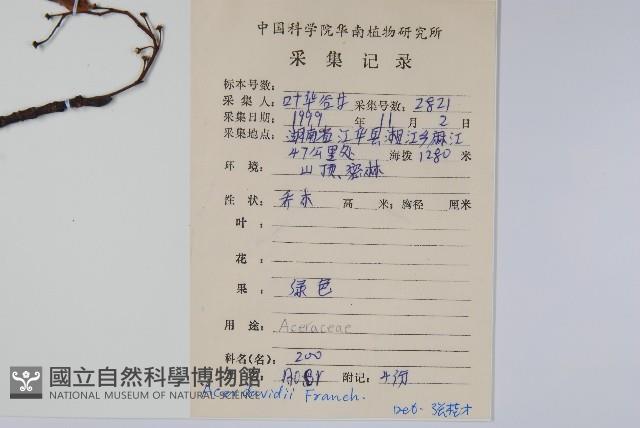 中国科学院华南植物研究所
采集记录
标本号数:
采集人: 叶华谷 采集号数: 2821
采集日期: 1999 年 11 月 2 日
采集地点: 湖南省江华县湘江乡麻江
47公里处 海拨 1280 米
环 境: 山顶、密林
性 状: 乔木 高 米; 胸径 厘米
叶 :
花 :
果 : 绿色
用 途: Aceraceae
科名(名): 200
附记: 4份
Acer davidii Franch.
Det.
國立自然科學博物館
NATIONAL MUSEUM OF NATURAL SCIENCE